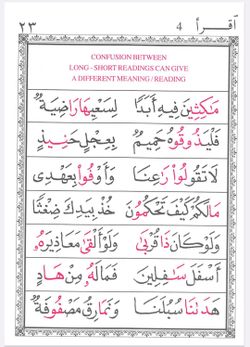 ٢٣ 4 اَقْرَأْ
CONFUSION BETWEEN
LONG - SHORT READINGS CAN GIVE
A DIFFERENT MEANING / READING
مَاكِثِينَ فِيهِ أَبَدًا لِسَعْيِهَا رَاضِيَةٌ
فَلْيَذُوقُوهُ حَمِيمٌ بِعِجْلٍ حَنِيذٍ
لَا تَقُولُوا رَاعِنَا وَأَوْفُوا بِعَهْدِى
مَالَكُمْ كَيْفَ تَحْكُمُونَ خُذْ بِيَدِكَ ضِغْثًا
وَلَوْ كَانَ ذَا قُرْبَىٰ وَلَوْ أَلْقَىٰ مَعَاذِيرَهُ
أَسْفَلَ سَافِلِينَ فَمَالَهُ مِنْ هَادٍ
هَدَىٰنَا سُبُلَنَا وَنَمَارِقُ مَصْفُوفَةٌ